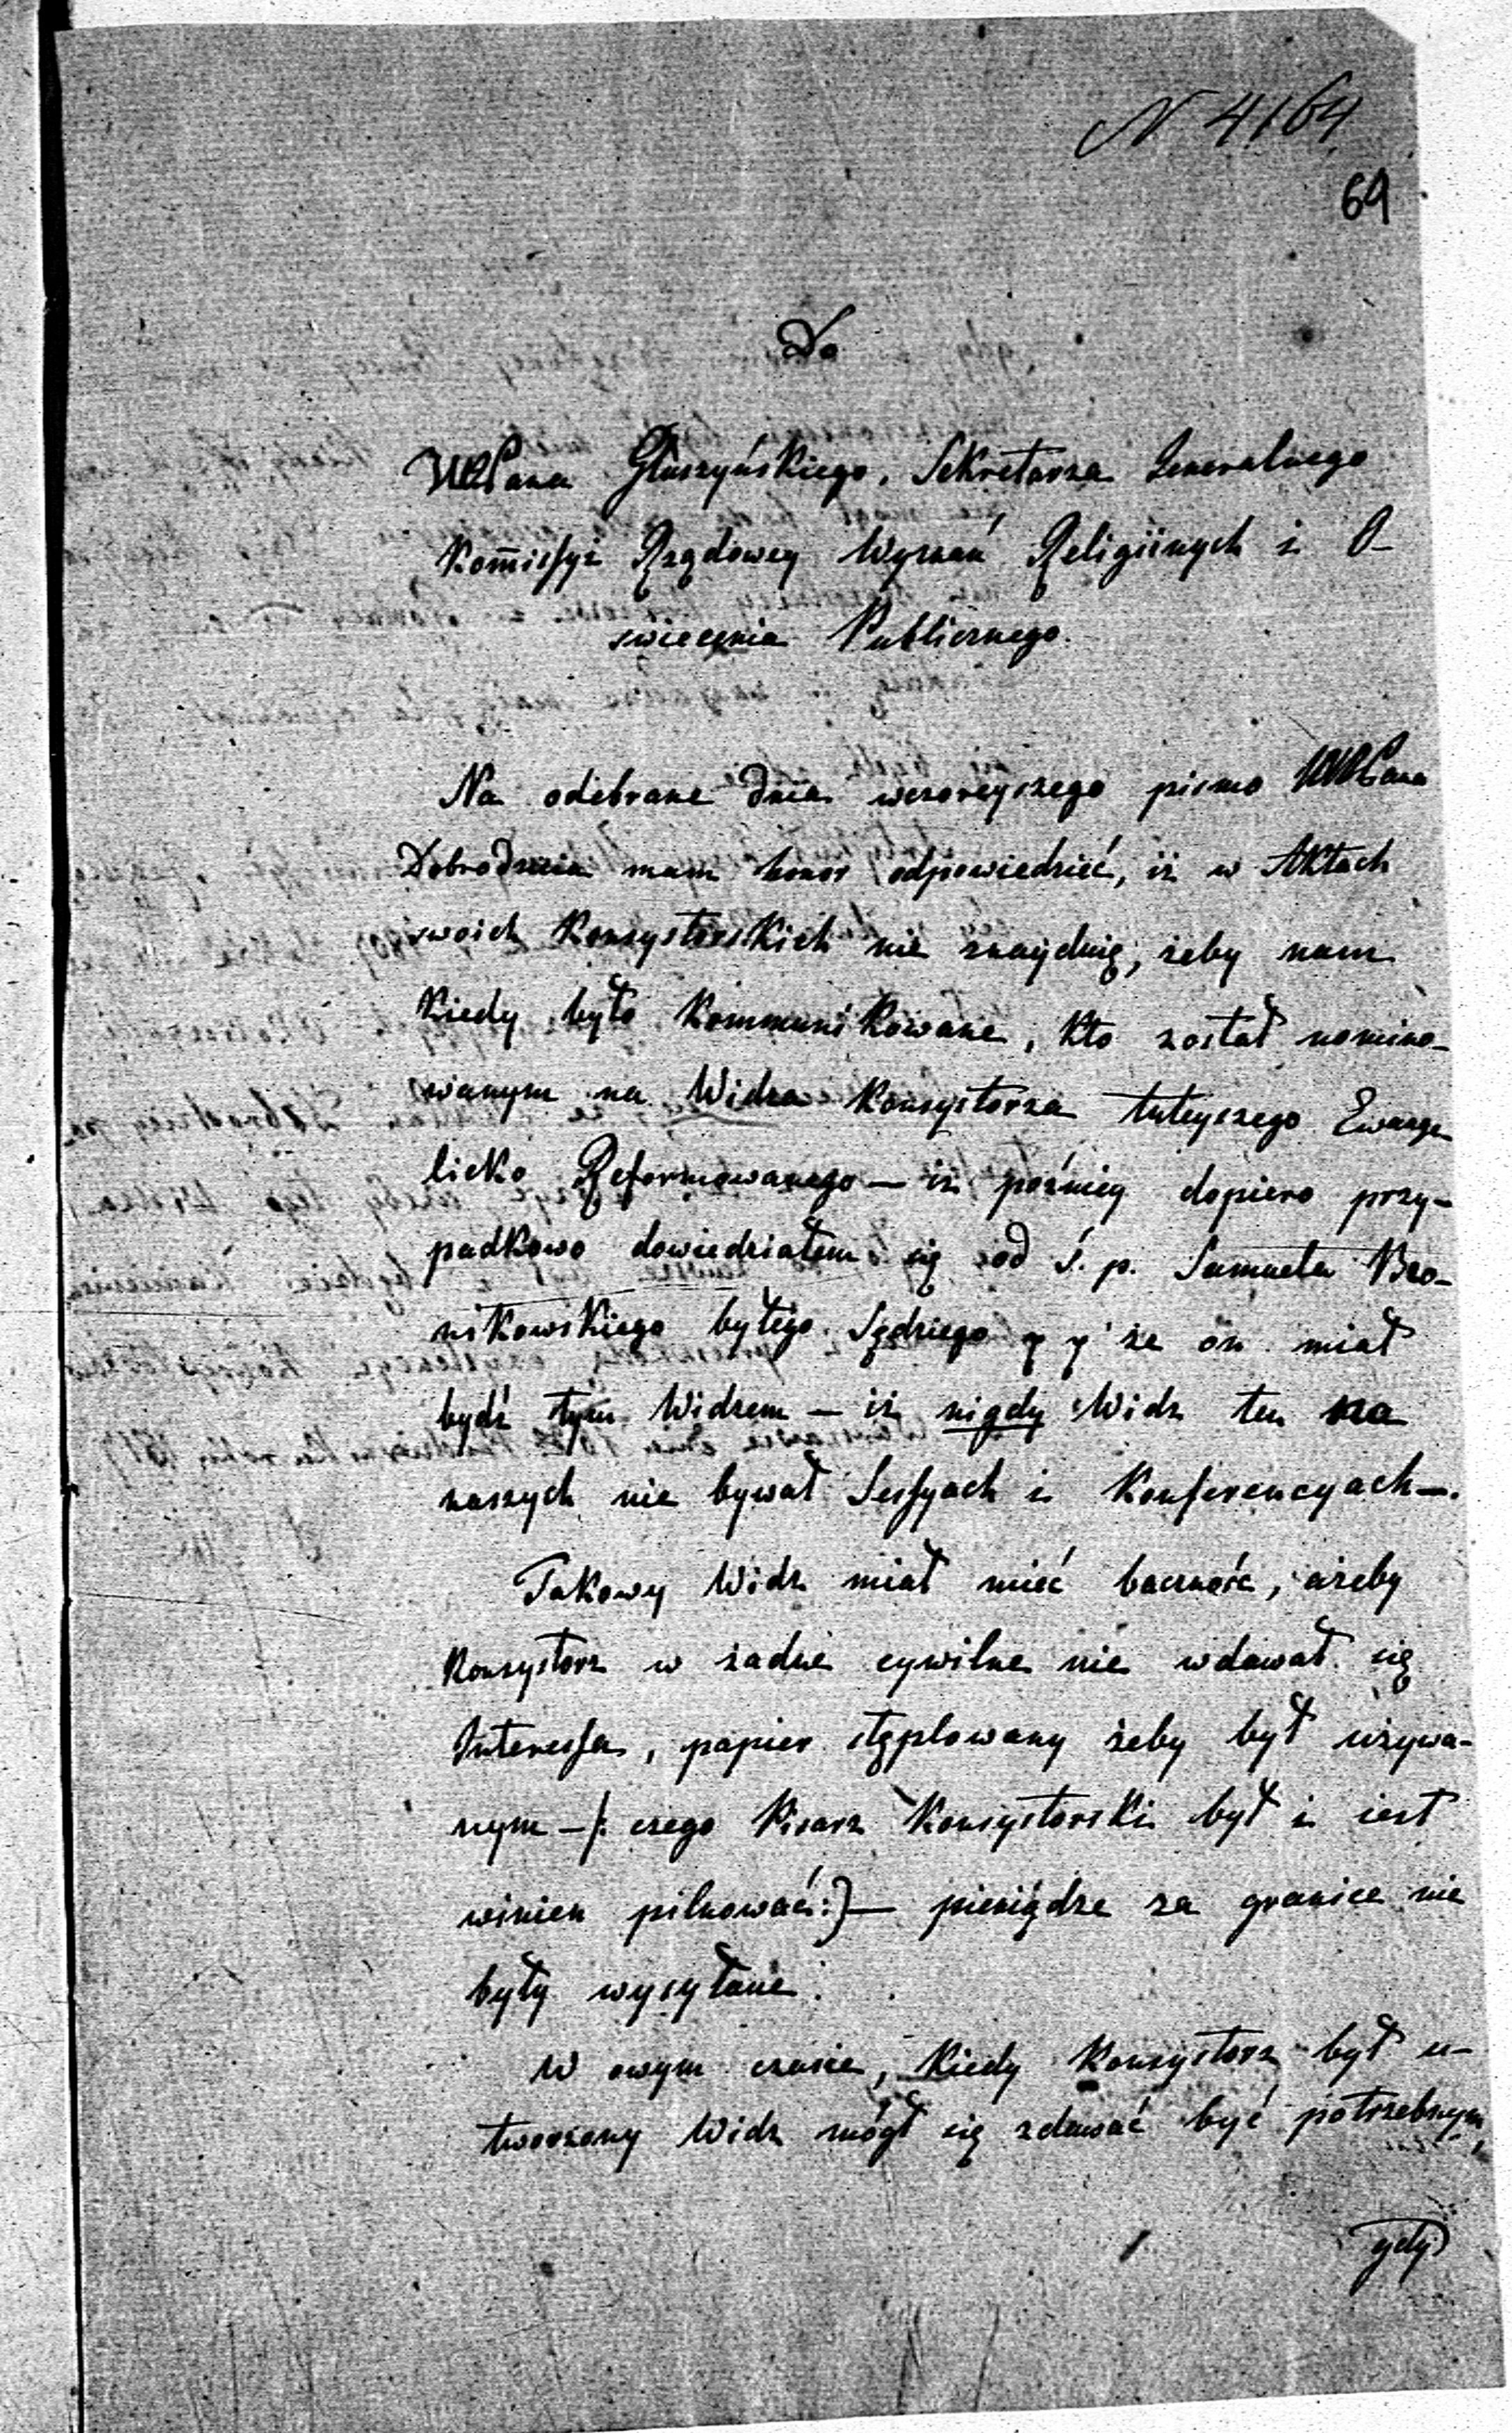 N 4164
69
Do
WPana Głuszyńskiego, Sekretarza Generalnego
Kom̄issyi Rządowey Wyznań Religiinych i O-
swiecenia Publicznego.
Na odebrane dnia wczoreyszego pismo WWPana
Dobrodzieia mam honor odpowiedzieć, iż w Aktach
swoich Konsystorskich nie znayduię, żeby nam
kiedy było kommunikowane, kto został nomino-
wanym na Widza Konsystorza tuteyszego Ewange
licko Reformowanego — iż poźniey dopiero przy-
padkowo dowiedziałem się od ś. p. Samuela Bro-
nikowskiego byłego Sędziego y y że on miał
bydź tym Widzem — iż nigdy Widz ten na
naszych nie bywał Sessyach i Konferencyach —.
Takowy Widz miał mieć baczność, ażeby
Konsystorz w żadne cywilne nie wdawał się
Interessa, papier stęplowany żeby był używa-
nym — /: czego Pisarz Konsystorski był i iest
winien pilnować :/ — pieniądze za granice nie
były wysyłane.
W owym czasie, kiedy Konsystorz był u-
tworzony Widz mógł się zdawać być potrzebnym,
gdy